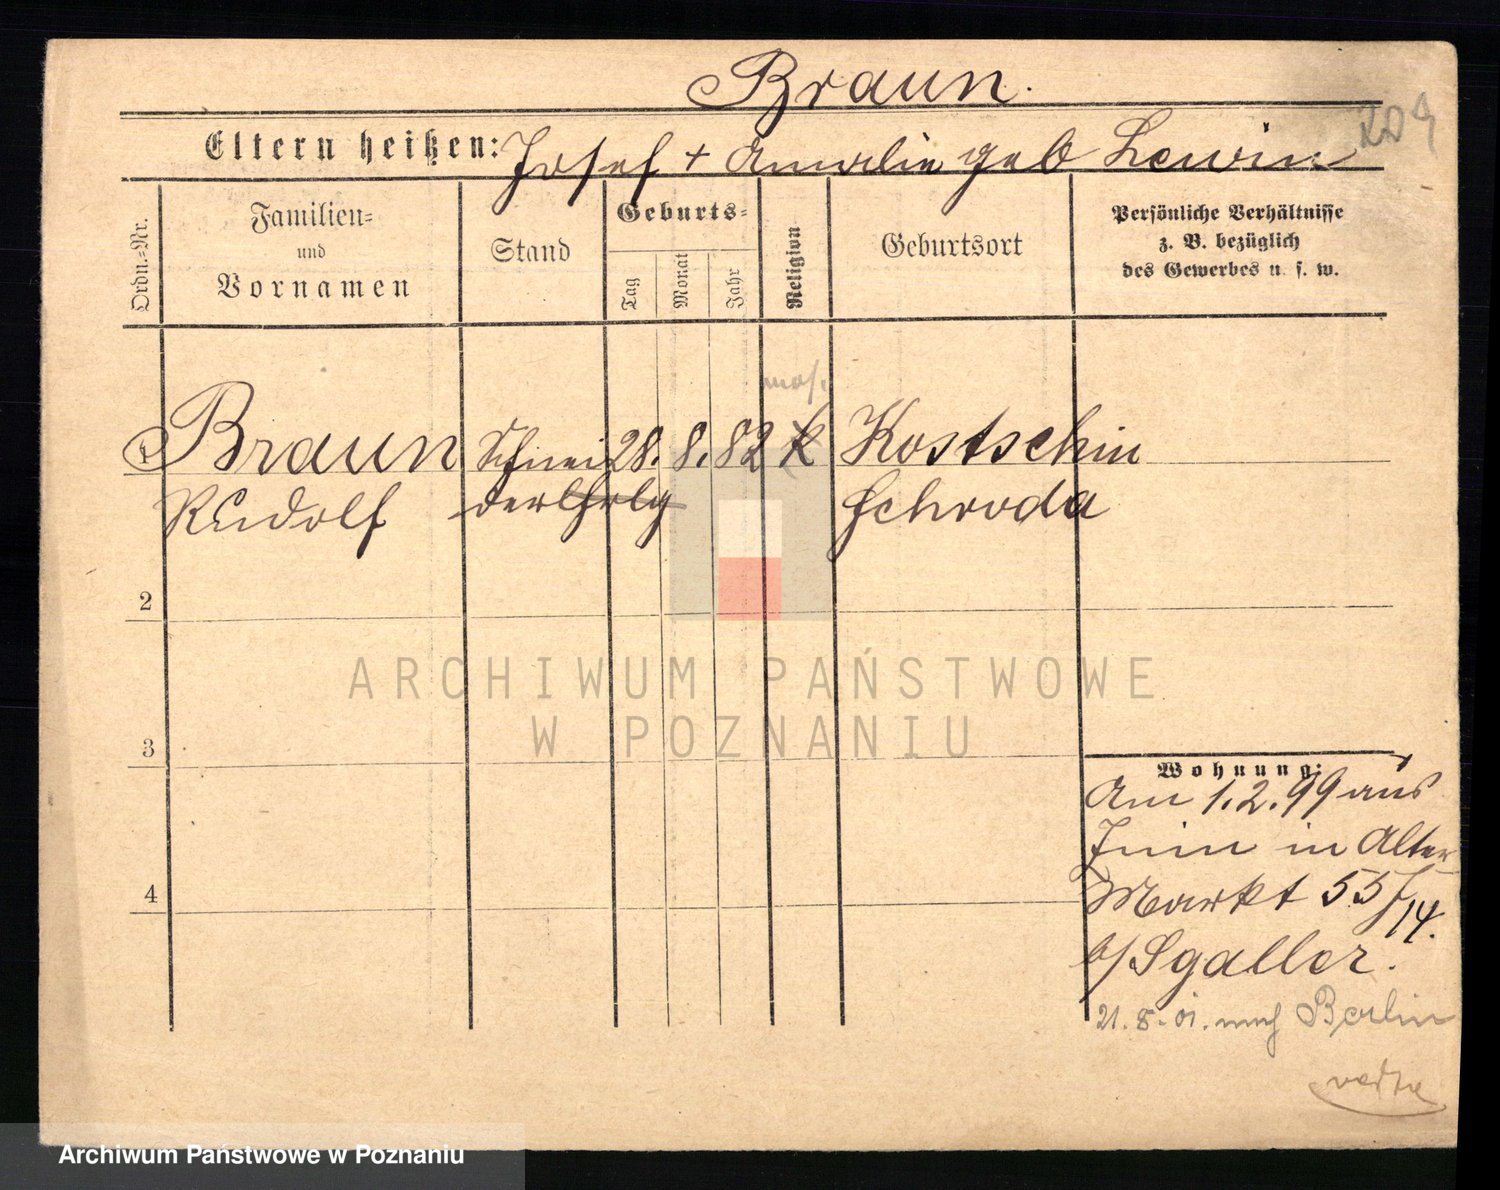 Braun.
209
Eltern heißen: Josef + Amalie geb Lewin
Ordn.-Nr.
Familien-
und
Vornamen
Stand
Geburts-
Tag
Monat
Jahr
Religion
Geburtsort
Persönliche Verhältnisse
z. B. bezüglich
des Gewerbes u. s. w.
mos.
1 Braun Schnei 28. 8. 82 k Kostschin
Rudolf derlhrlg Schroda
2
3
4
ARCHIWUM PAŃSTWOWE
W POZNANIU
Wohnung:
Am 1.2.99 aus
Znin in Alter
Markt 55/14.
b/ Sgaller.
21.8.01. nach Berlin
Archiwum Państwowe w Poznaniu